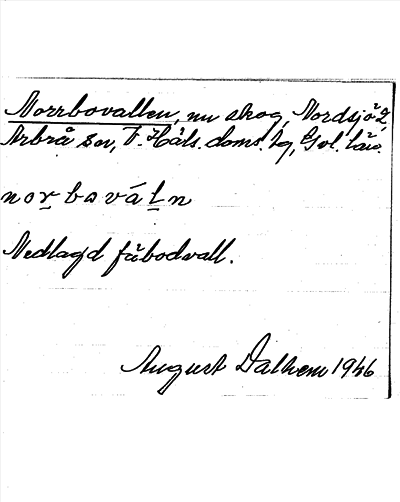 Norrbovallen, nu skog, Nordsjö 2,
Arbrå sn, V. Häls. doms. tg, Gvl. län.
norbováln
Nedlagd fäbodvall.
August Dalhem 1946